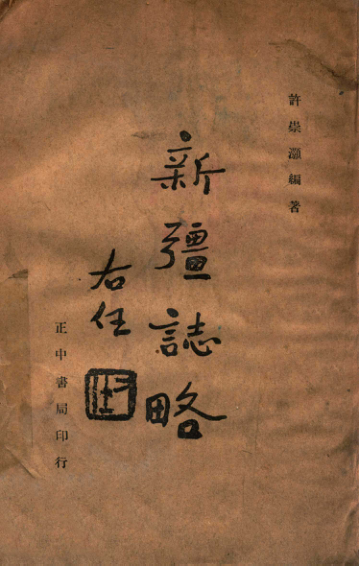 許崇灝編著
新疆誌略
右任
正中書局印行